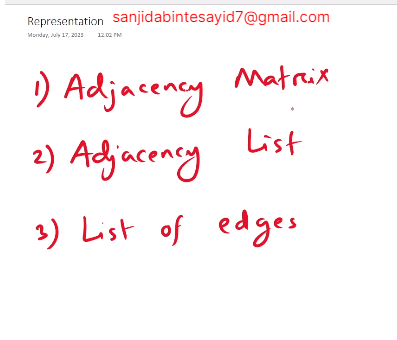 Representation sanjidabintesayid7@gmail.com
Monday, July 17, 2023 12:02 PM
1) Adjacency Matrix
2) Adjacency List
3) List of edges